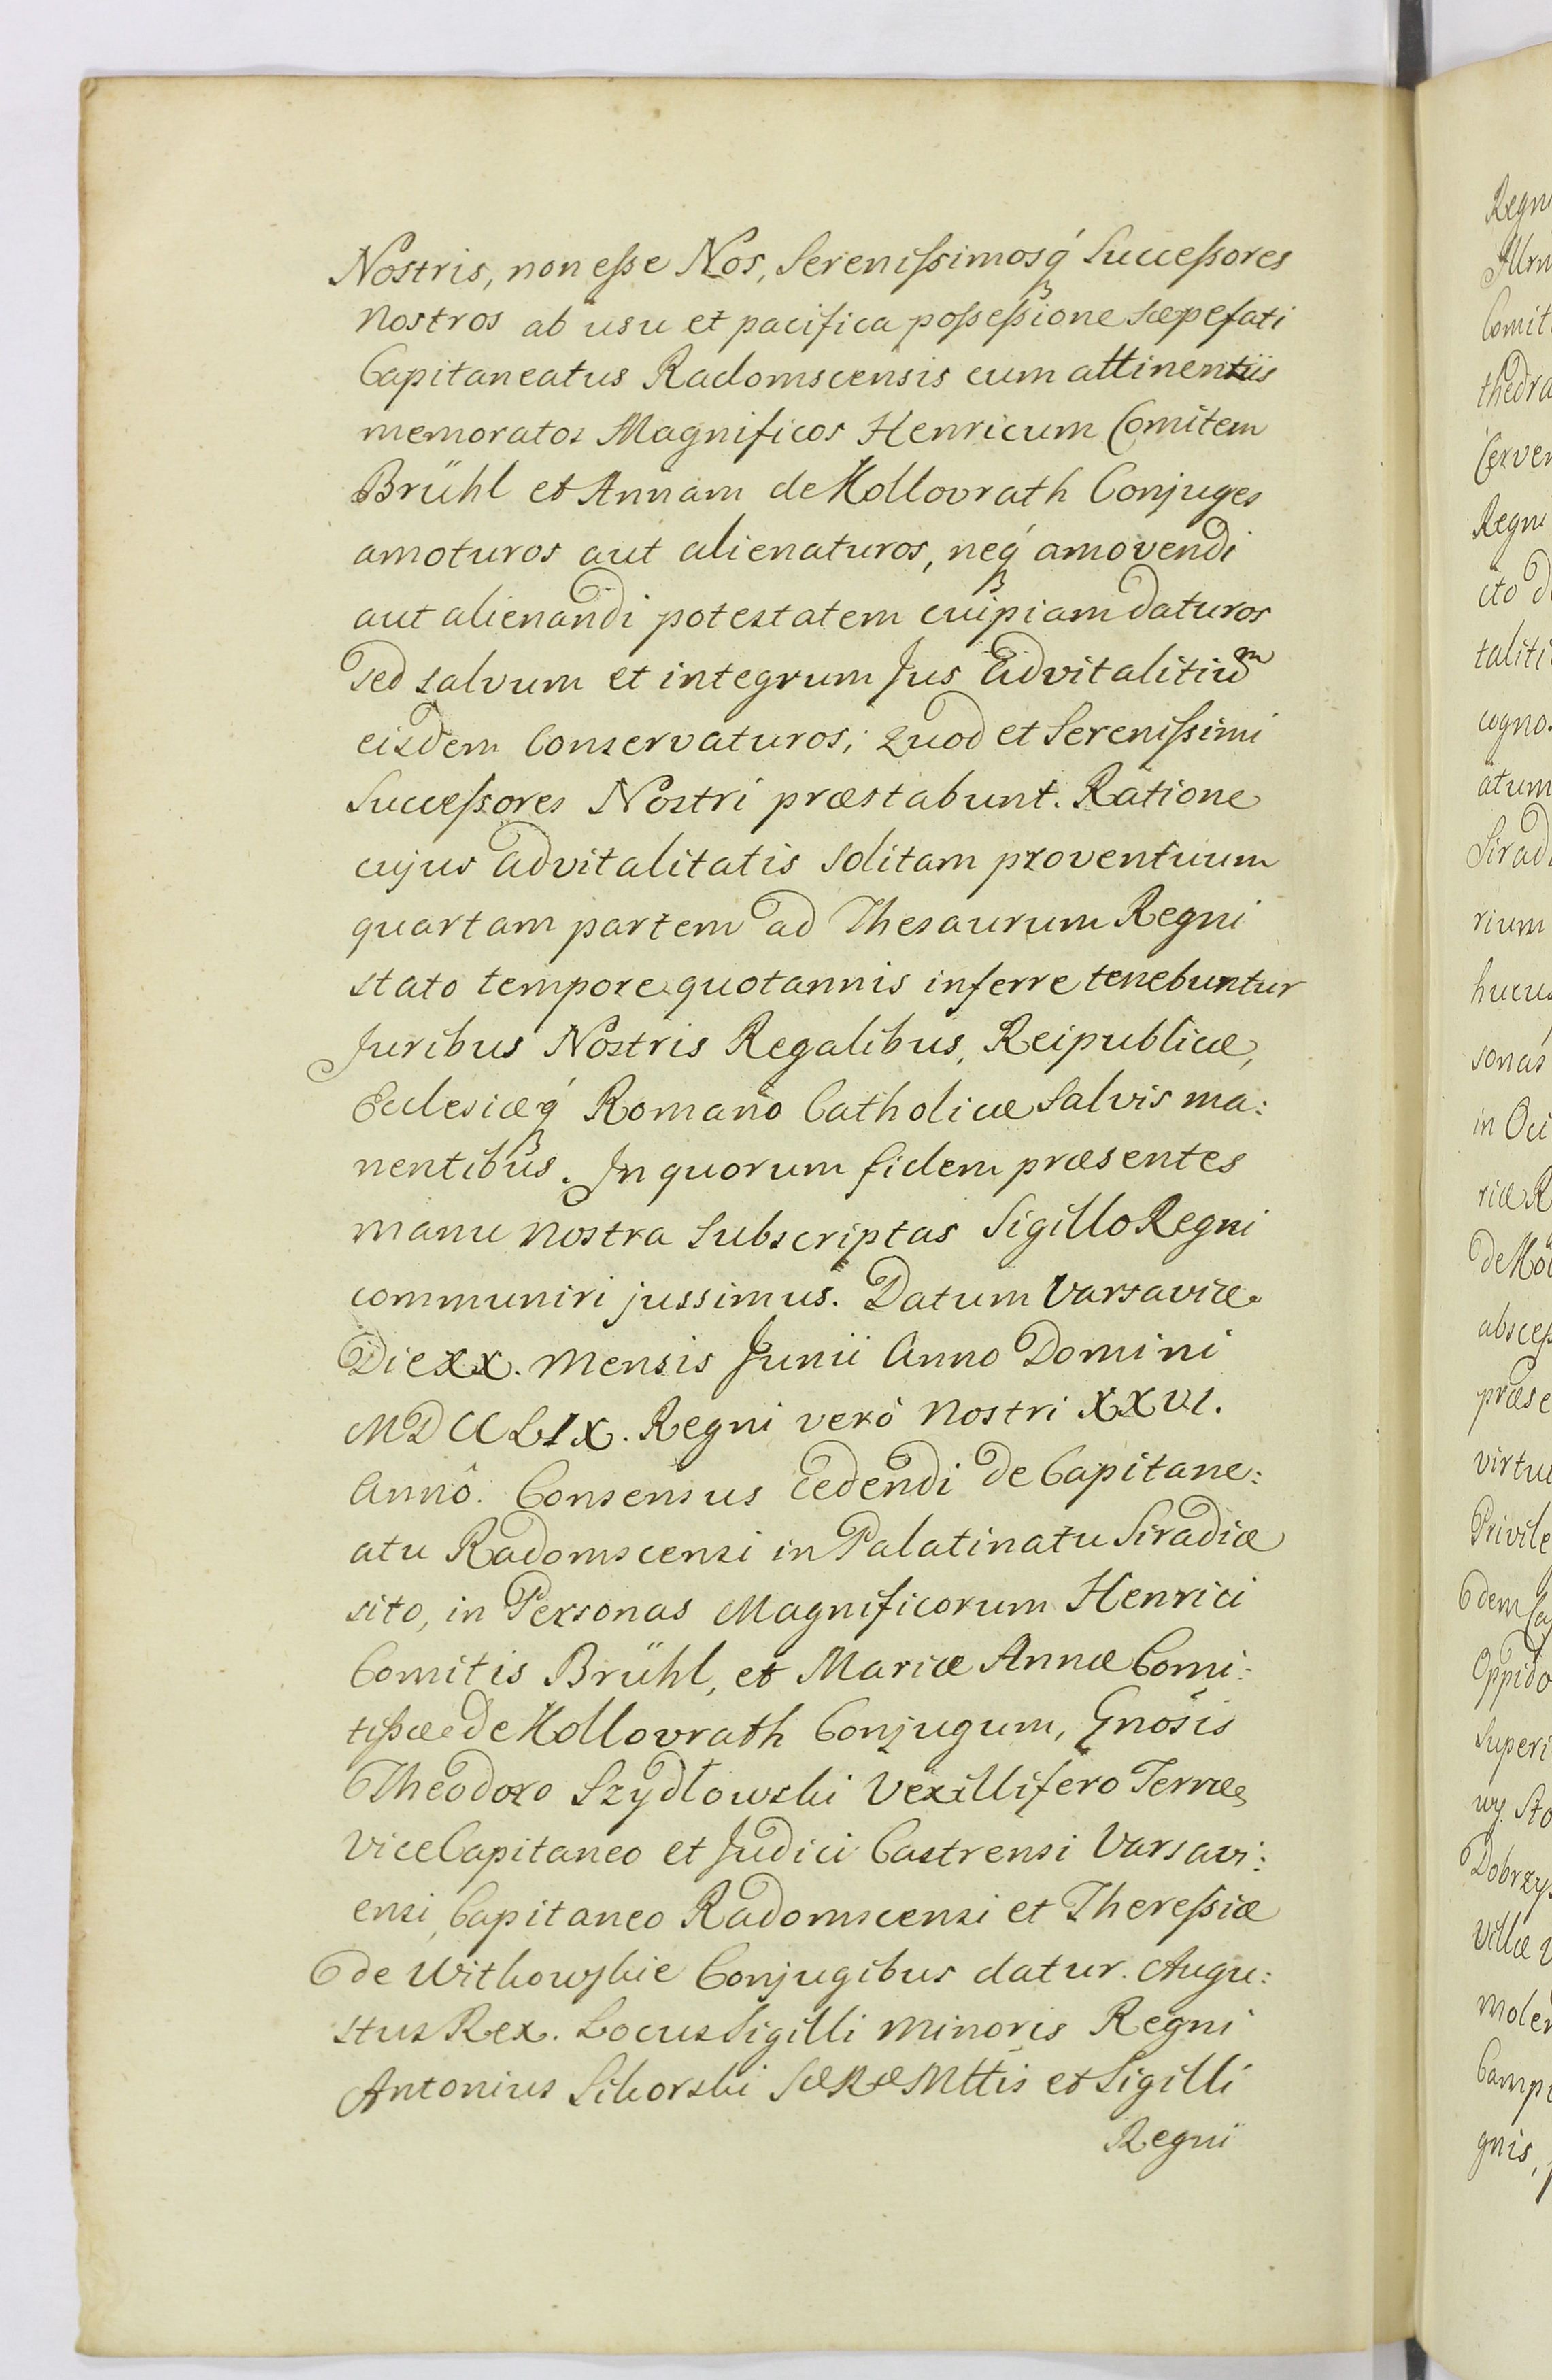 Nostris, non esse Nos, Serenissimosq́ Successores
nostros ab usu et pacifica possessione sæpefati
Capitaneatus Radomscensis cum attinentiis
memoratos Magnificos Henricum Comitem
Brühl et Annam de Kollovrath Conjuges
amoturos aut alienaturos, neq́ amovendi
aut alienandi potestatem cuipiam daturos
sed salvum et integrum Jus Advitalitiũm
eisdem Conservaturos; quod et Serenissimi
Successores Nostri præstabunt. Ratione
cujus advitalitatis solitam proventuum
quartam partem ad Thesaurum Regni
stato tempore quotannis inferre tenebuntur
Juribus Nostris Regalibus, Reipublicæ,
Ecclesiæq́ Romano Catholicæ Salvis ma:
nentibus. In quorum fidem præsentes
manu nostra Subscriptas Sigillo Regni
communiri jussimus. Datum Varsaviæ
Die XX. mensis Junii Anno Domini
MDCCLIX. Regni verò nostri XXVI.
Annô. Consensus cedendi de Capitane:
atu Radomscensi in Palatinatu Siradiæ
sito, in Personas Magnificorum Henrici
Comitis Brühl, et Mariæ Annæ Comi:
tissæ de Kollovrath Conjugum, Gnosis
Theodoro Szydłowski Vexillifero Terræ
ViceCapitaneo et Judici Castrensi Varsavi:
ensi, Capitaneo Radomscensi et Theressiæ
de Witkowskie Conjugibus datur. Augu:
stus Rex. Locus Sigilli minoris Regni
Antonius Sikorski SæRæMttis et Sigilli
Regni
Regni
Comit
thedra
Regni
cto
taliti
cogno
atum
Sirad
rium
sonas
in
riæ
absces
præse
virtu
Privile
dem
Oppido
Superi
Dobrzy
Villæ
molen
Camp
gnis,